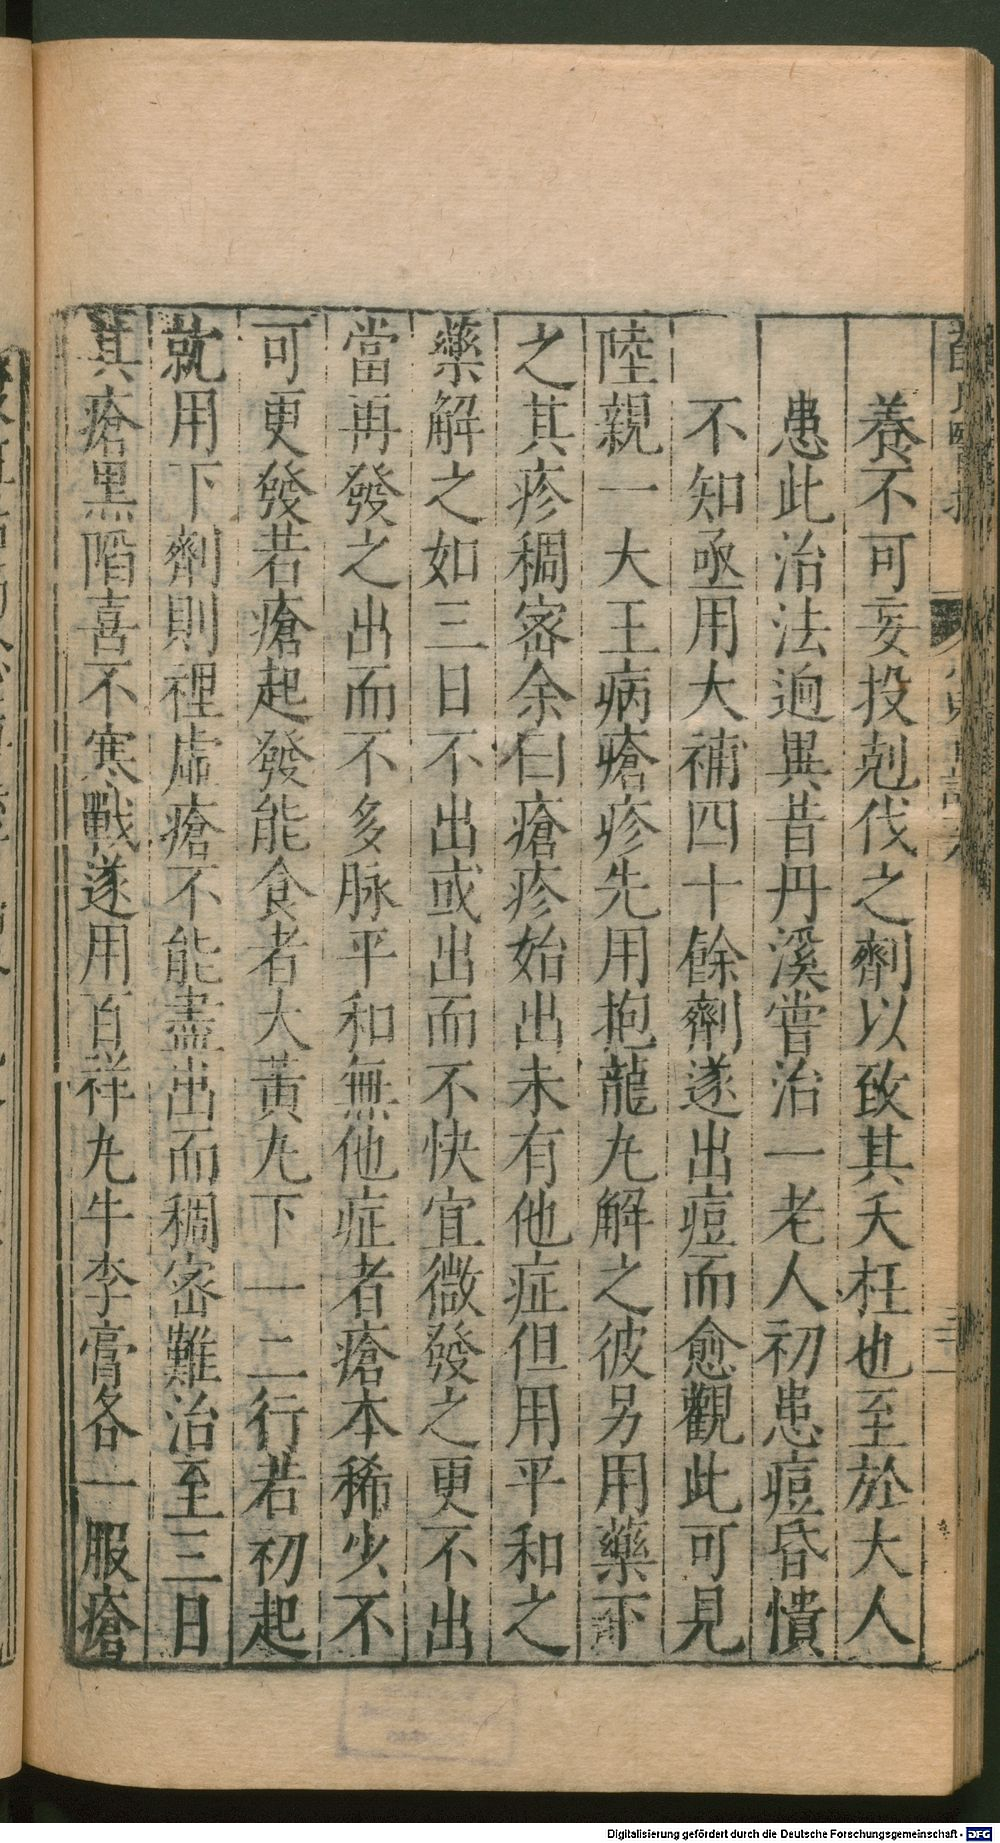 養不可妄投剋伐之劑以致其夭枉也至於大人
患此治法逈異昔丹溪嘗治一老人初患痘昏憒
不知亟用大補四十餘劑遂出痘而愈觀此可見
陸親一大王病瘡疹先用抱龍丸解之彼另用藥下
之其疹稠密余曰瘡疹始出未有他症但用平和之
藥解之如三日不出或出而不快宜微發之更不出
當再發之出而不多脉平和無他症者瘡本稀少不
可更發若瘡起發能食者大黃丸下一二行若初起
就用下劑則裡虛瘡不能盡出而稠密難治至三日
其瘡黑陷喜不寒戰遂用百祥丸牛李膏各一服瘡
Digitalisierung gefördert durch die Deutsche Forschungsgemeinschaft - DFG